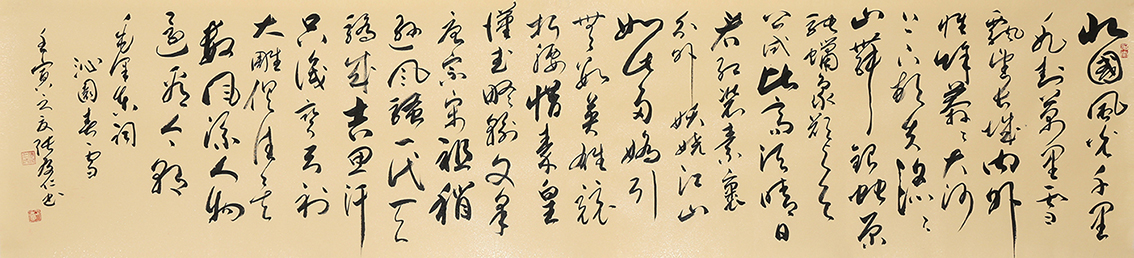 北國風光千里
冰封萬里雪
飄望長城內外
惟餘莽莽大河
上下頓失滔滔
山舞銀蛇原
馳蠟象欲與天
公試比高須晴日
看紅裝素裹
分外妖嬈江山
如此多嬌引
無數英雄競
折腰惜秦皇
漢武略輸文采
唐宗宋祖稍
遜風騷一代天
驕成吉思汗
只識彎弓射
大雕俱往矣
數風流人物
還看今朝
毛澤東詞
沁園春雪
壬寅之夏張仁書